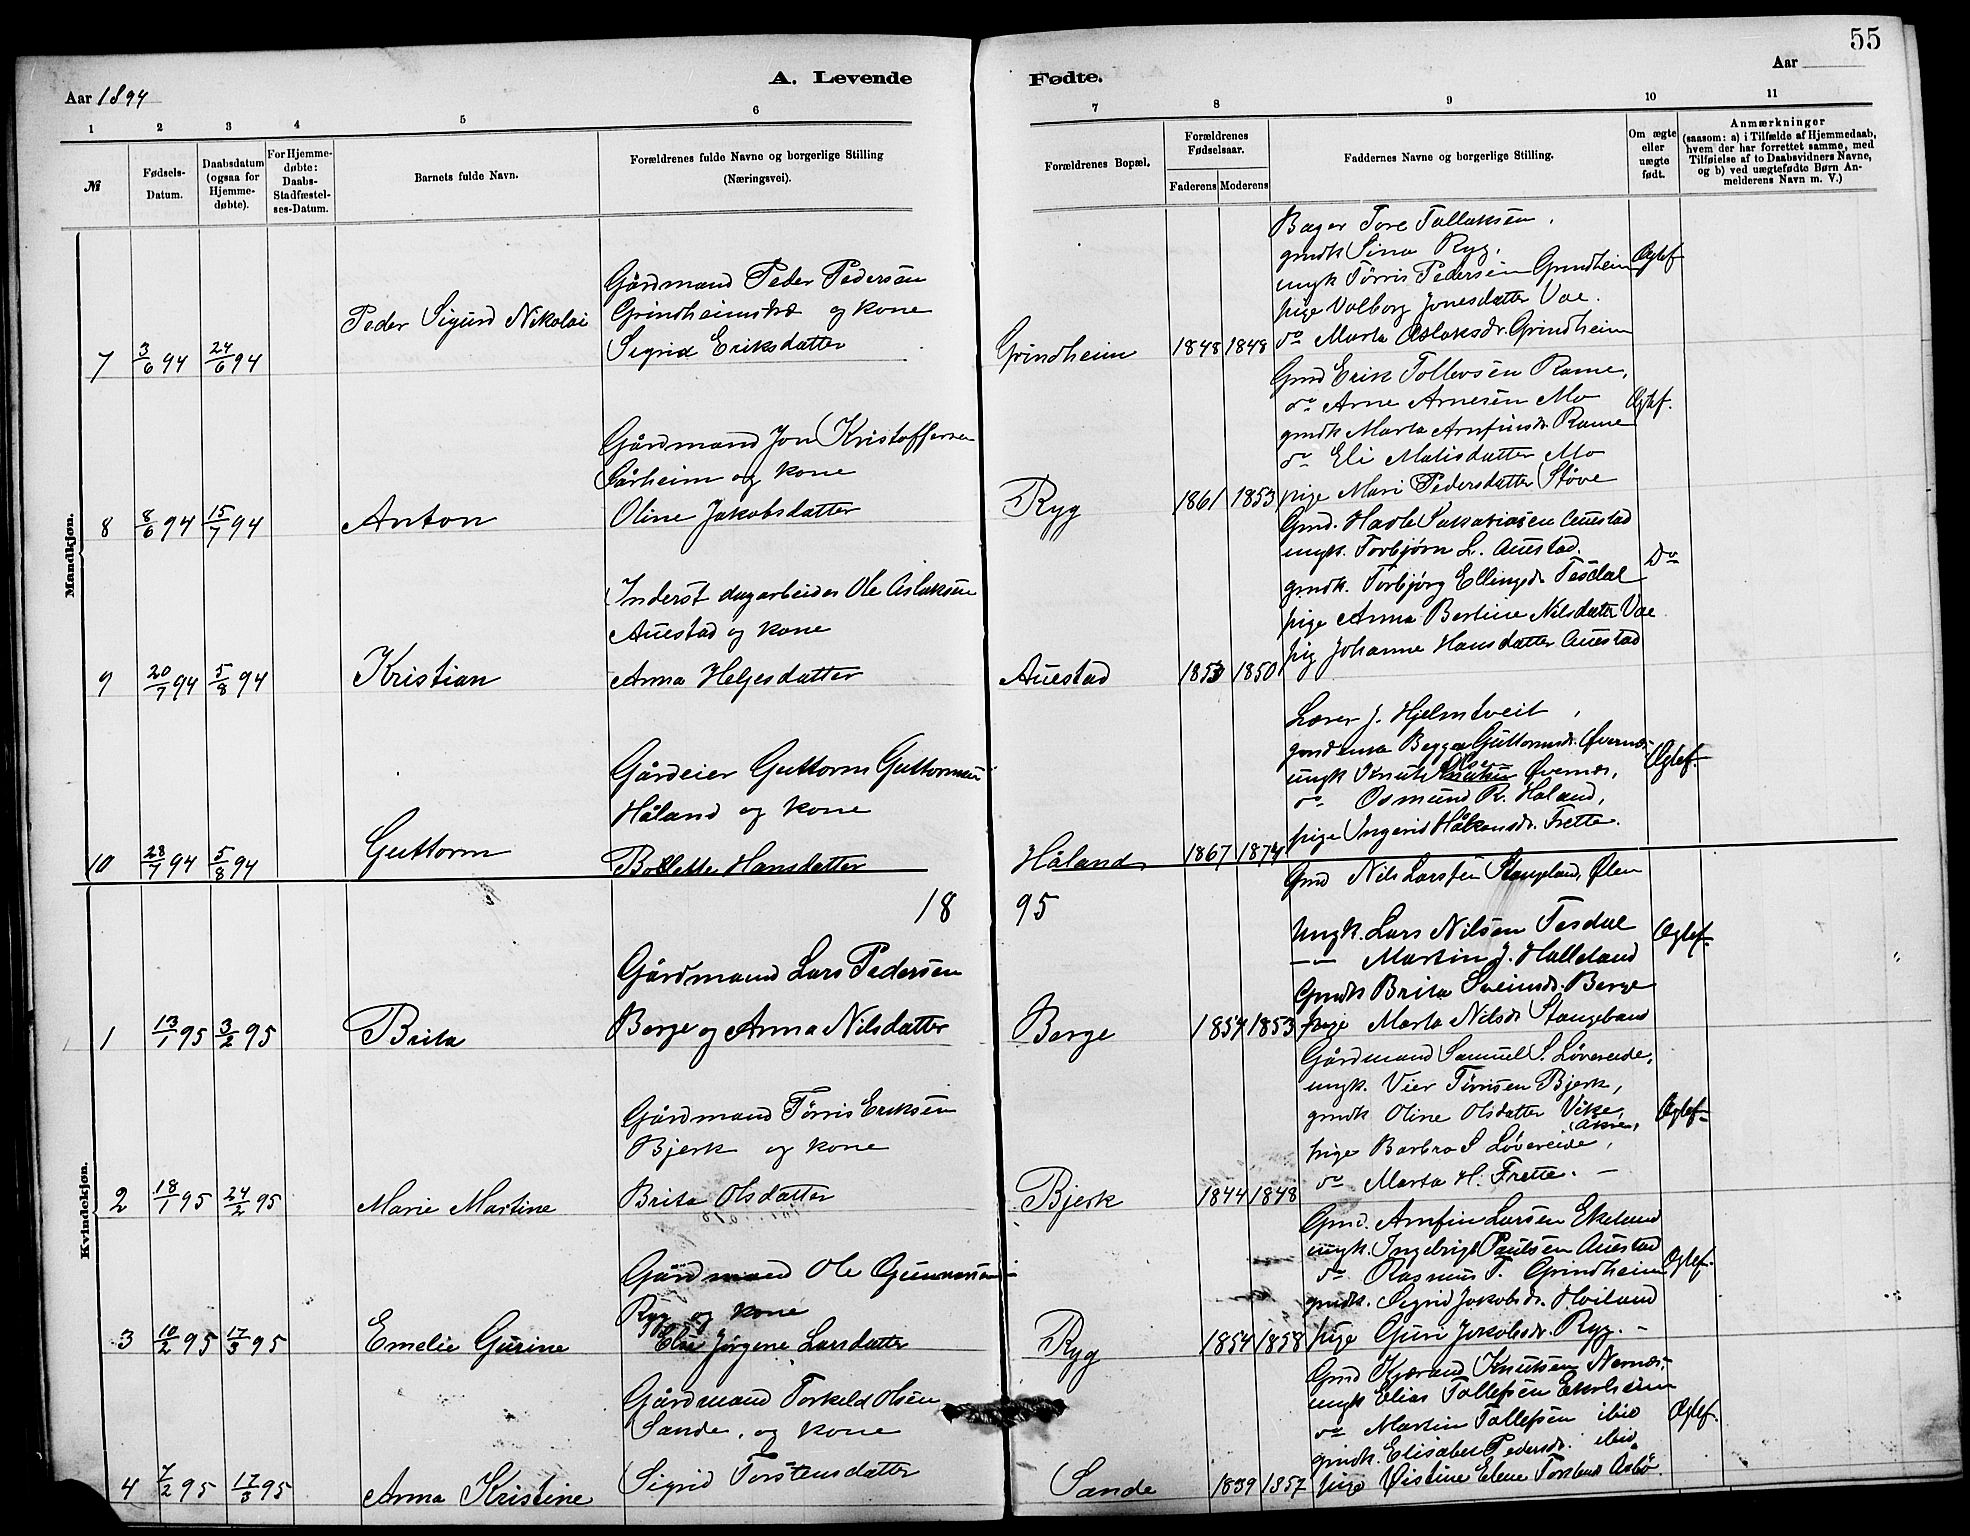 55
A. Levende Fødte.
Aar 1894
Aar
1 2 3 4 5 6 7 8 9 10 11
№
Fødsels-Datum.
Daabsdatum (ogsaa for Hjemmedøbte).
For Hjemmedøbte: Daabs-Stadfæstelses-Datum.
Barnets fulde Navn.
Forældrenes fulde Navne og borgerlige Stilling (Næringsvei).
Forældrenes Bopæl.
Forældrenes Fødselsaar.
Faderens Moderens
Faddernes Navne og borgerlige Stilling.
Om ægte eller uægte født.
Anmærkninger
(saasom: a) i Tilfælde af Hjemmedaab, hvem der har forrettet samme, med Tilføielse af to Daabsvidners Navne, og b) ved uægtefødte Børn Anmelderens Navn m. V.)
Mandkjøn.
7 3/6 94 24/6 94 Peder Sigurd Nikolai
Gårdmand Peder Pedersen
Grindheimstræ og kone
Sigrid Eriksdatter
Grindheim 1848 1848
Bager Tore Tollaksen.
gmdk Sina Ryg.
ungk Tørris Pedersen Grindheim
pige Valborg Jonesdatter Vae.
do Marta Aslaksdr. Grindheim
Ægtef
8 8/6 94 15/7 94 Anton
Gårdmand Jon Kristoffersen
Sårheim og kone
Oline Jakobsdatter
Ryg 1861 1853
Gmd Erik Tollevsen Rame,
do Arne Arnesen Mo
gmdk Marta Arnfinsdr Rame
do Eli Matisdatter Mo
pige Mari Pedersdatter Støve
Ægtef.
9 20/7 94 5/8 94 Kristian
Inderst dagarbeider Ole Aslaksen
Auestad og kone
Anna Helgesdatter
Auestad 1853 1850
Gmd. Havle Sakariasen Auestad
ungk. Torbjørn L. Auestad.
gmdk. Torbjørg Ellingsdr Tesdal
pige Anna Bertine Nilsdatter Vae
pig Johanne Hansdatter Auestad
Do
10 28/7 94 5/8 94 Guttorm
Gårdeier Guttorm Guttormsen
Håland og kone
Bollette Hansdatter
Håland 1867 1874
Lærer J. Hjelmtveit,
Guttormsdr. Øvernæs
ungk Knut Olsen Øvernæs,
do Osmund R. Håland,
pige Ingerid Håkonsdr. Frette.
Ægtef.
1895
Kvindekjøn.
1 13/1 95 3/2 95 Brita
Gårdmand Lars Pedersen
Berge og Anna Nilsdatter
Berge 1857 1853
Gmd Nils Larsen Stangeland, Ølen
Ungk. Lars Nilsen Tesdal
-- Martin J. Halleland
Gmdk Brita Sveinsdr. Berge
pige Marta Nilsdr Stangeland
Ægtef-
2 18/1 95 24/2 95 Marie Martine
Gårdmand Tørris Eriksen
Bjerk og kone
Brita Olsdatter
Bjerk 1844 1848
Gårdmand Samuel S. Løvereide,
ungk. Vier Tørrisen Bjerk,
gmdk Oline Olsdatter Vike, Åkre,
pige Barbra S Løvereide,
do Marta H. Frette. -
Ægtef-
3 10/2 95 17/3 95 Emelie Gurine
Gårdmand Ole Gunnarsen
Ryg og kone
Else Jørgene Larsdatter
Ryg 1854 1858
Gmd. Arnfin Larsen Ekeland
ungk. Ingebrigt Paulsen Auestad
do Rasmus T. Grindheim
gmdk. Sigrid Jakobsdr. Hviland
pige Guri Jakobsdr. Ryg. -
Ægtef.
4 7/2 95 17/3 95 Anna Kristine
Gårdmand Torkeld Olsen
Sande, og kone
Sigrid Torstensdatter
Sande 1859 1857
Gmd Kjærand Knutsen Nernæs,
ungk Elias Tollefsen
do Martin Tollefsen ibid
gmdk. Elisabet Pedersdr. ibid
pige Østine Elene Asbø.
Ægtef.